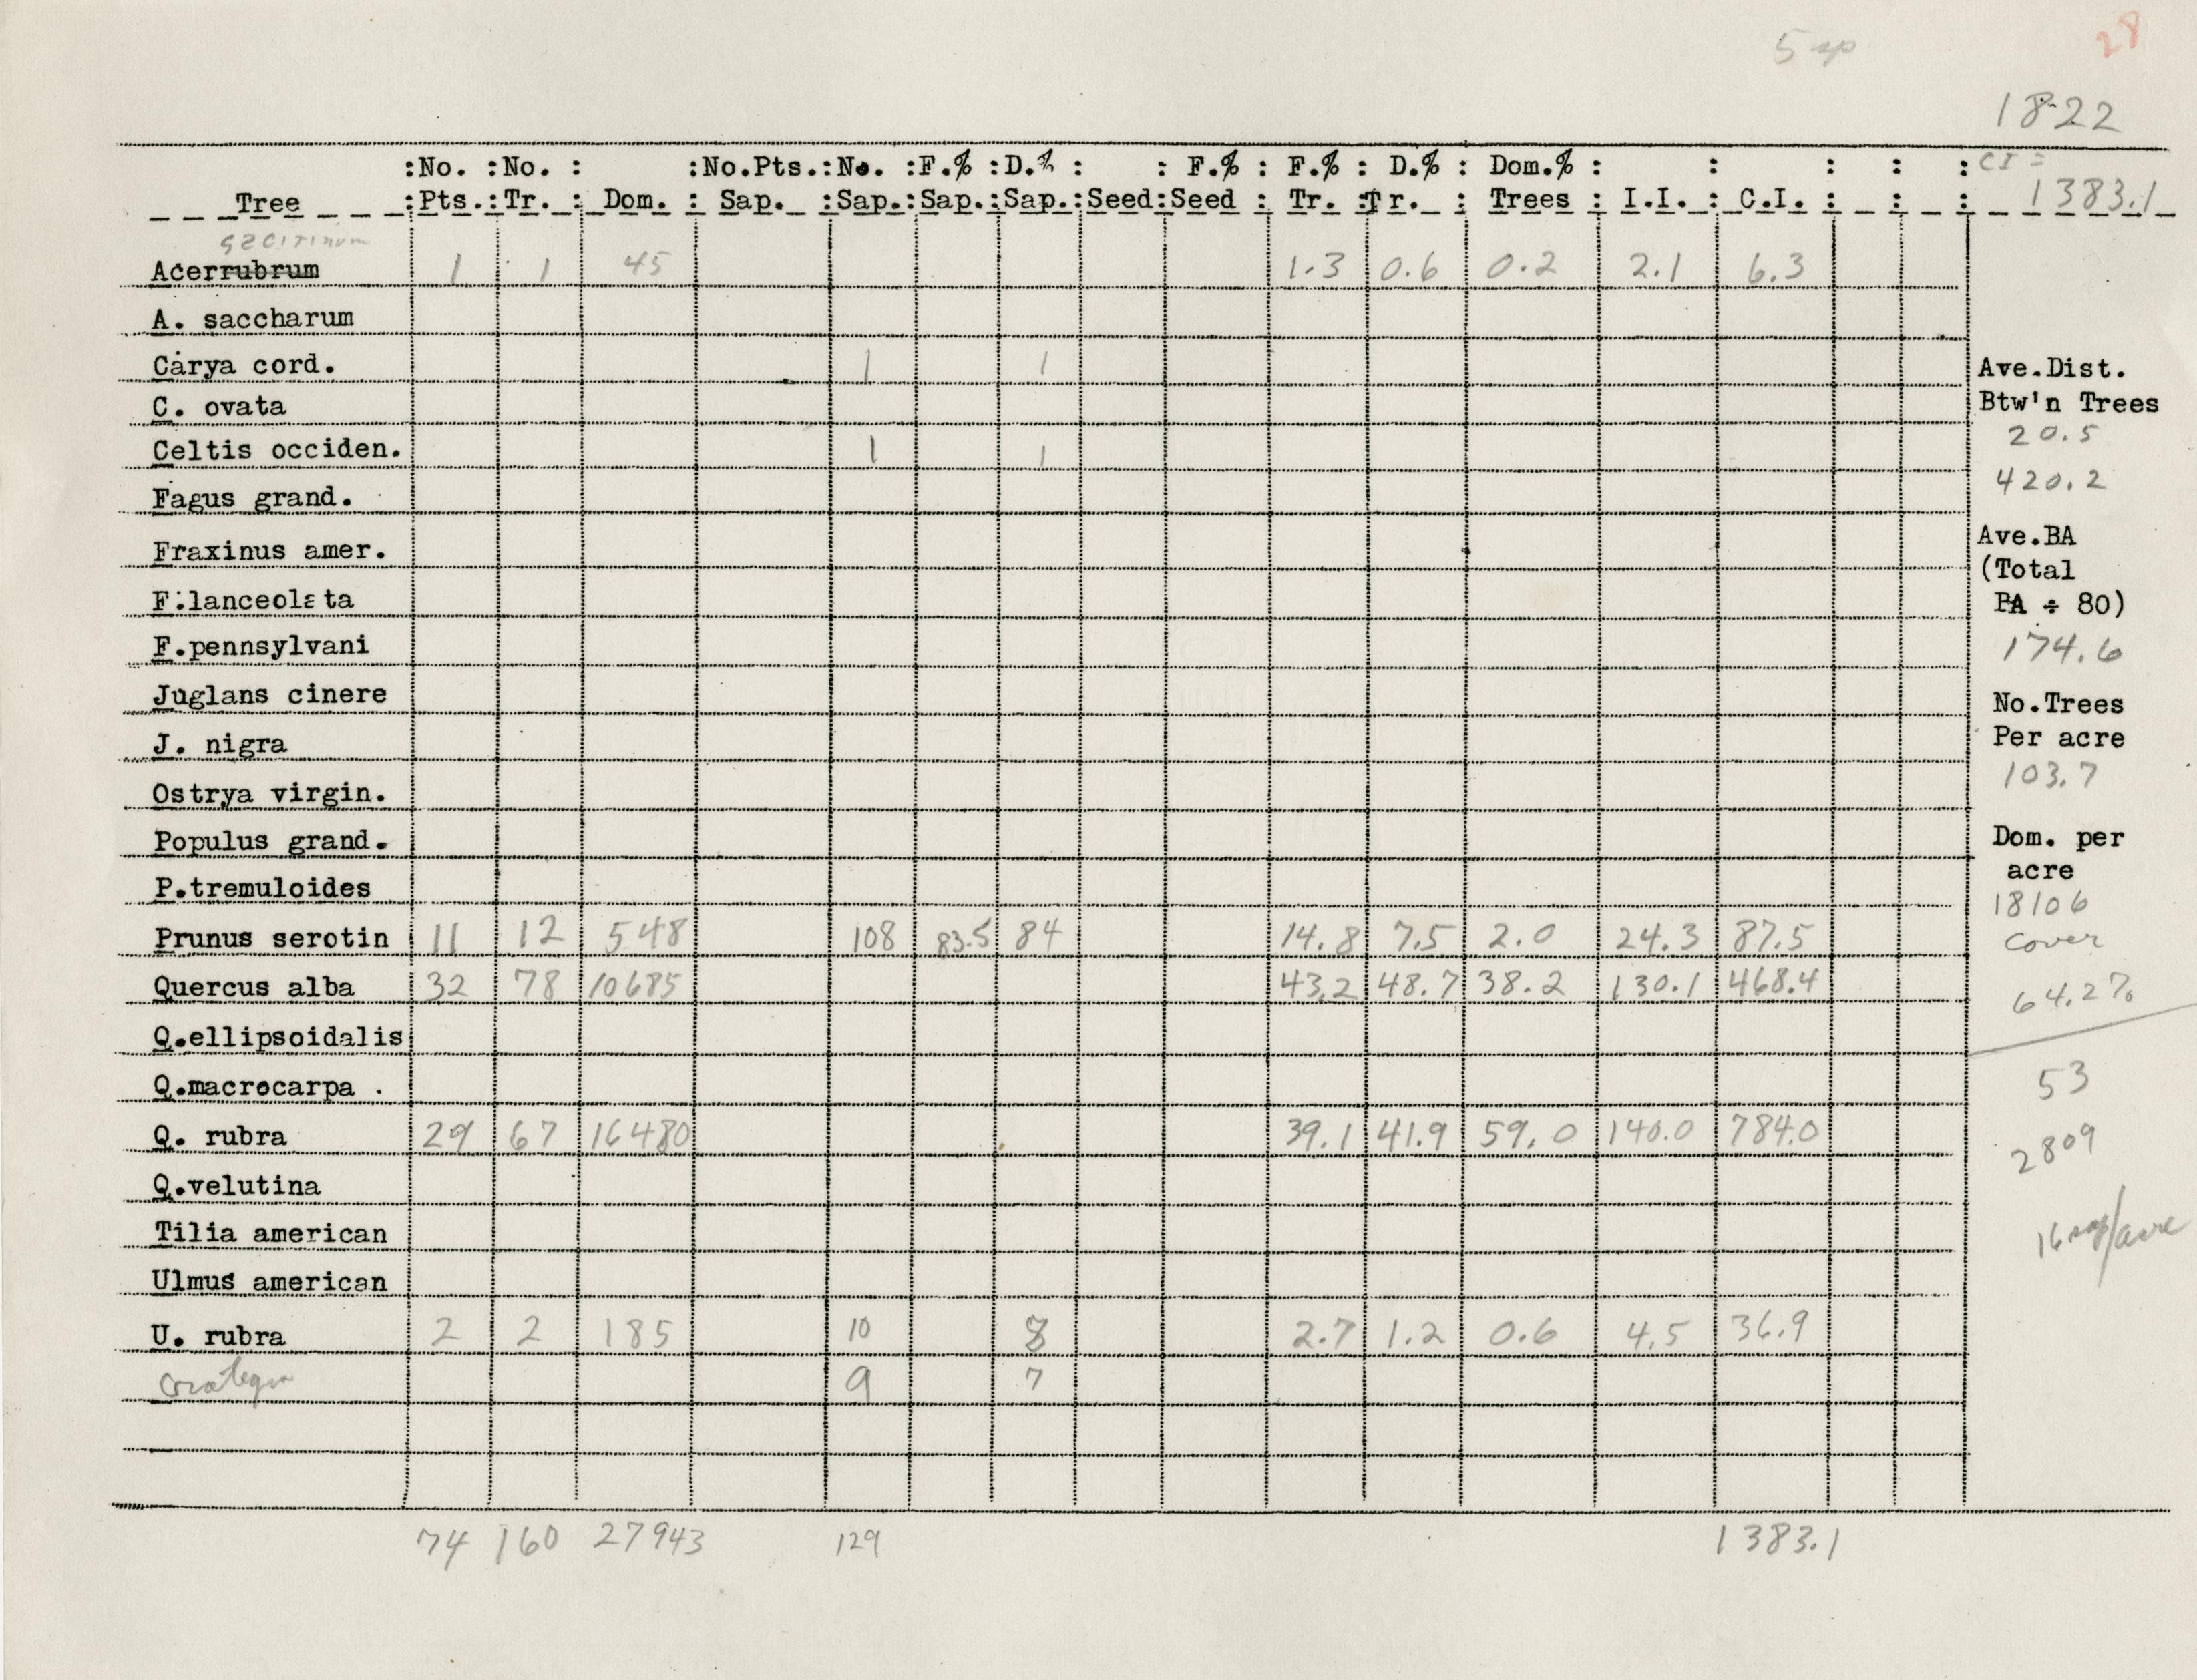 5 sp
28
1822
:No. :No. : :No.Pts.:No. :F.% :D.% : : F.% : F.% : D.% : Dom.% : : : : : CI =
Tree :Pts.:Tr. : Dom. : Sap. :Sap.:Sap.:Sap.:Seed:Seed : Tr. :Tr. : Trees : I.I. : C.I. : : : 1383.1
saccrinum
Acer rubrum 1 1 45 1.3 0.6 0.2 2.1 6.3
A. saccharum
Carya cord. 1 1
Ave.Dist.
C. ovata
Btw'n Trees
20.5
Celtis occiden. 1 1
420.2
Fagus grand.
Ave.BA
Fraxinus amer.
(Total
F.lanceolata
BA ÷ 80)
F.pennsylvani
174.6
Juglans cinere
No.Trees
J. nigra
Per acre
103.7
Ostrya virgin.
Populus grand.
Dom. per
acre
P.tremuloides
18106
Prunus serotin 11 12 548 108 83.5 84 14.8 7.5 2.0 24.3 87.5
cover
Quercus alba 32 78 10685 43.2 48.7 38.2 130.1 468.4
64.2%
Q.ellipsoidalis
53
Q.macrocarpa .
Q. rubra 29 67 16480 39.1 41.9 59.0 140.0 784.0
2809
Q.velutina
Tilia american
16 /acre
Ulmus american
U. rubra 2 2 185 10 8 2.7 1.2 0.6 4.5 36.9
9 7
74 160 27943 129 1383.1